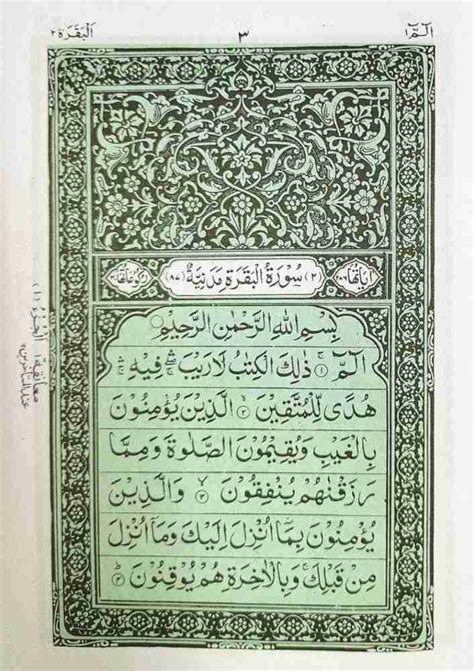 الٓمّٓ ١
٣
البقرة ٢
اٰیاتها ٢٨٦
(٢) سُوْرَةُ الْبَقَرَةِ مَدَنِيَّةٌ (٨٧)
رکوعاتها ٤٠
بِسْمِ اللهِ الرَّحْمٰنِ الرَّحِيْمِ
الٓمّٓ ۚ‏ ١ ذٰلِكَ الْكِتٰبُ لَا رَيْبَ ۛۚ فِيْهِ ۛۚ
هُدًى لِّلْمُتَّقِيْنَ ۙ ٢ الَّذِيْنَ يُؤْمِنُوْنَ
بِالْغَيْبِ وَيُقِيْمُوْنَ الصَّلٰوةَ وَمِمَّا
رَزَقْنٰهُمْ يُنْفِقُوْنَ ۙ ٣ وَالَّذِيْنَ
يُؤْمِنُوْنَ بِمَاۤ اُنْزِلَ اِلَيْكَ وَمَاۤ اُنْزِلَ
مِنْ قَبْلِكَ ۚ وَبِالْاٰخِرَةِ هُمْ يُوْقِنُوْنَ ؕ ٤
معانقة ١
عند المتأخرين